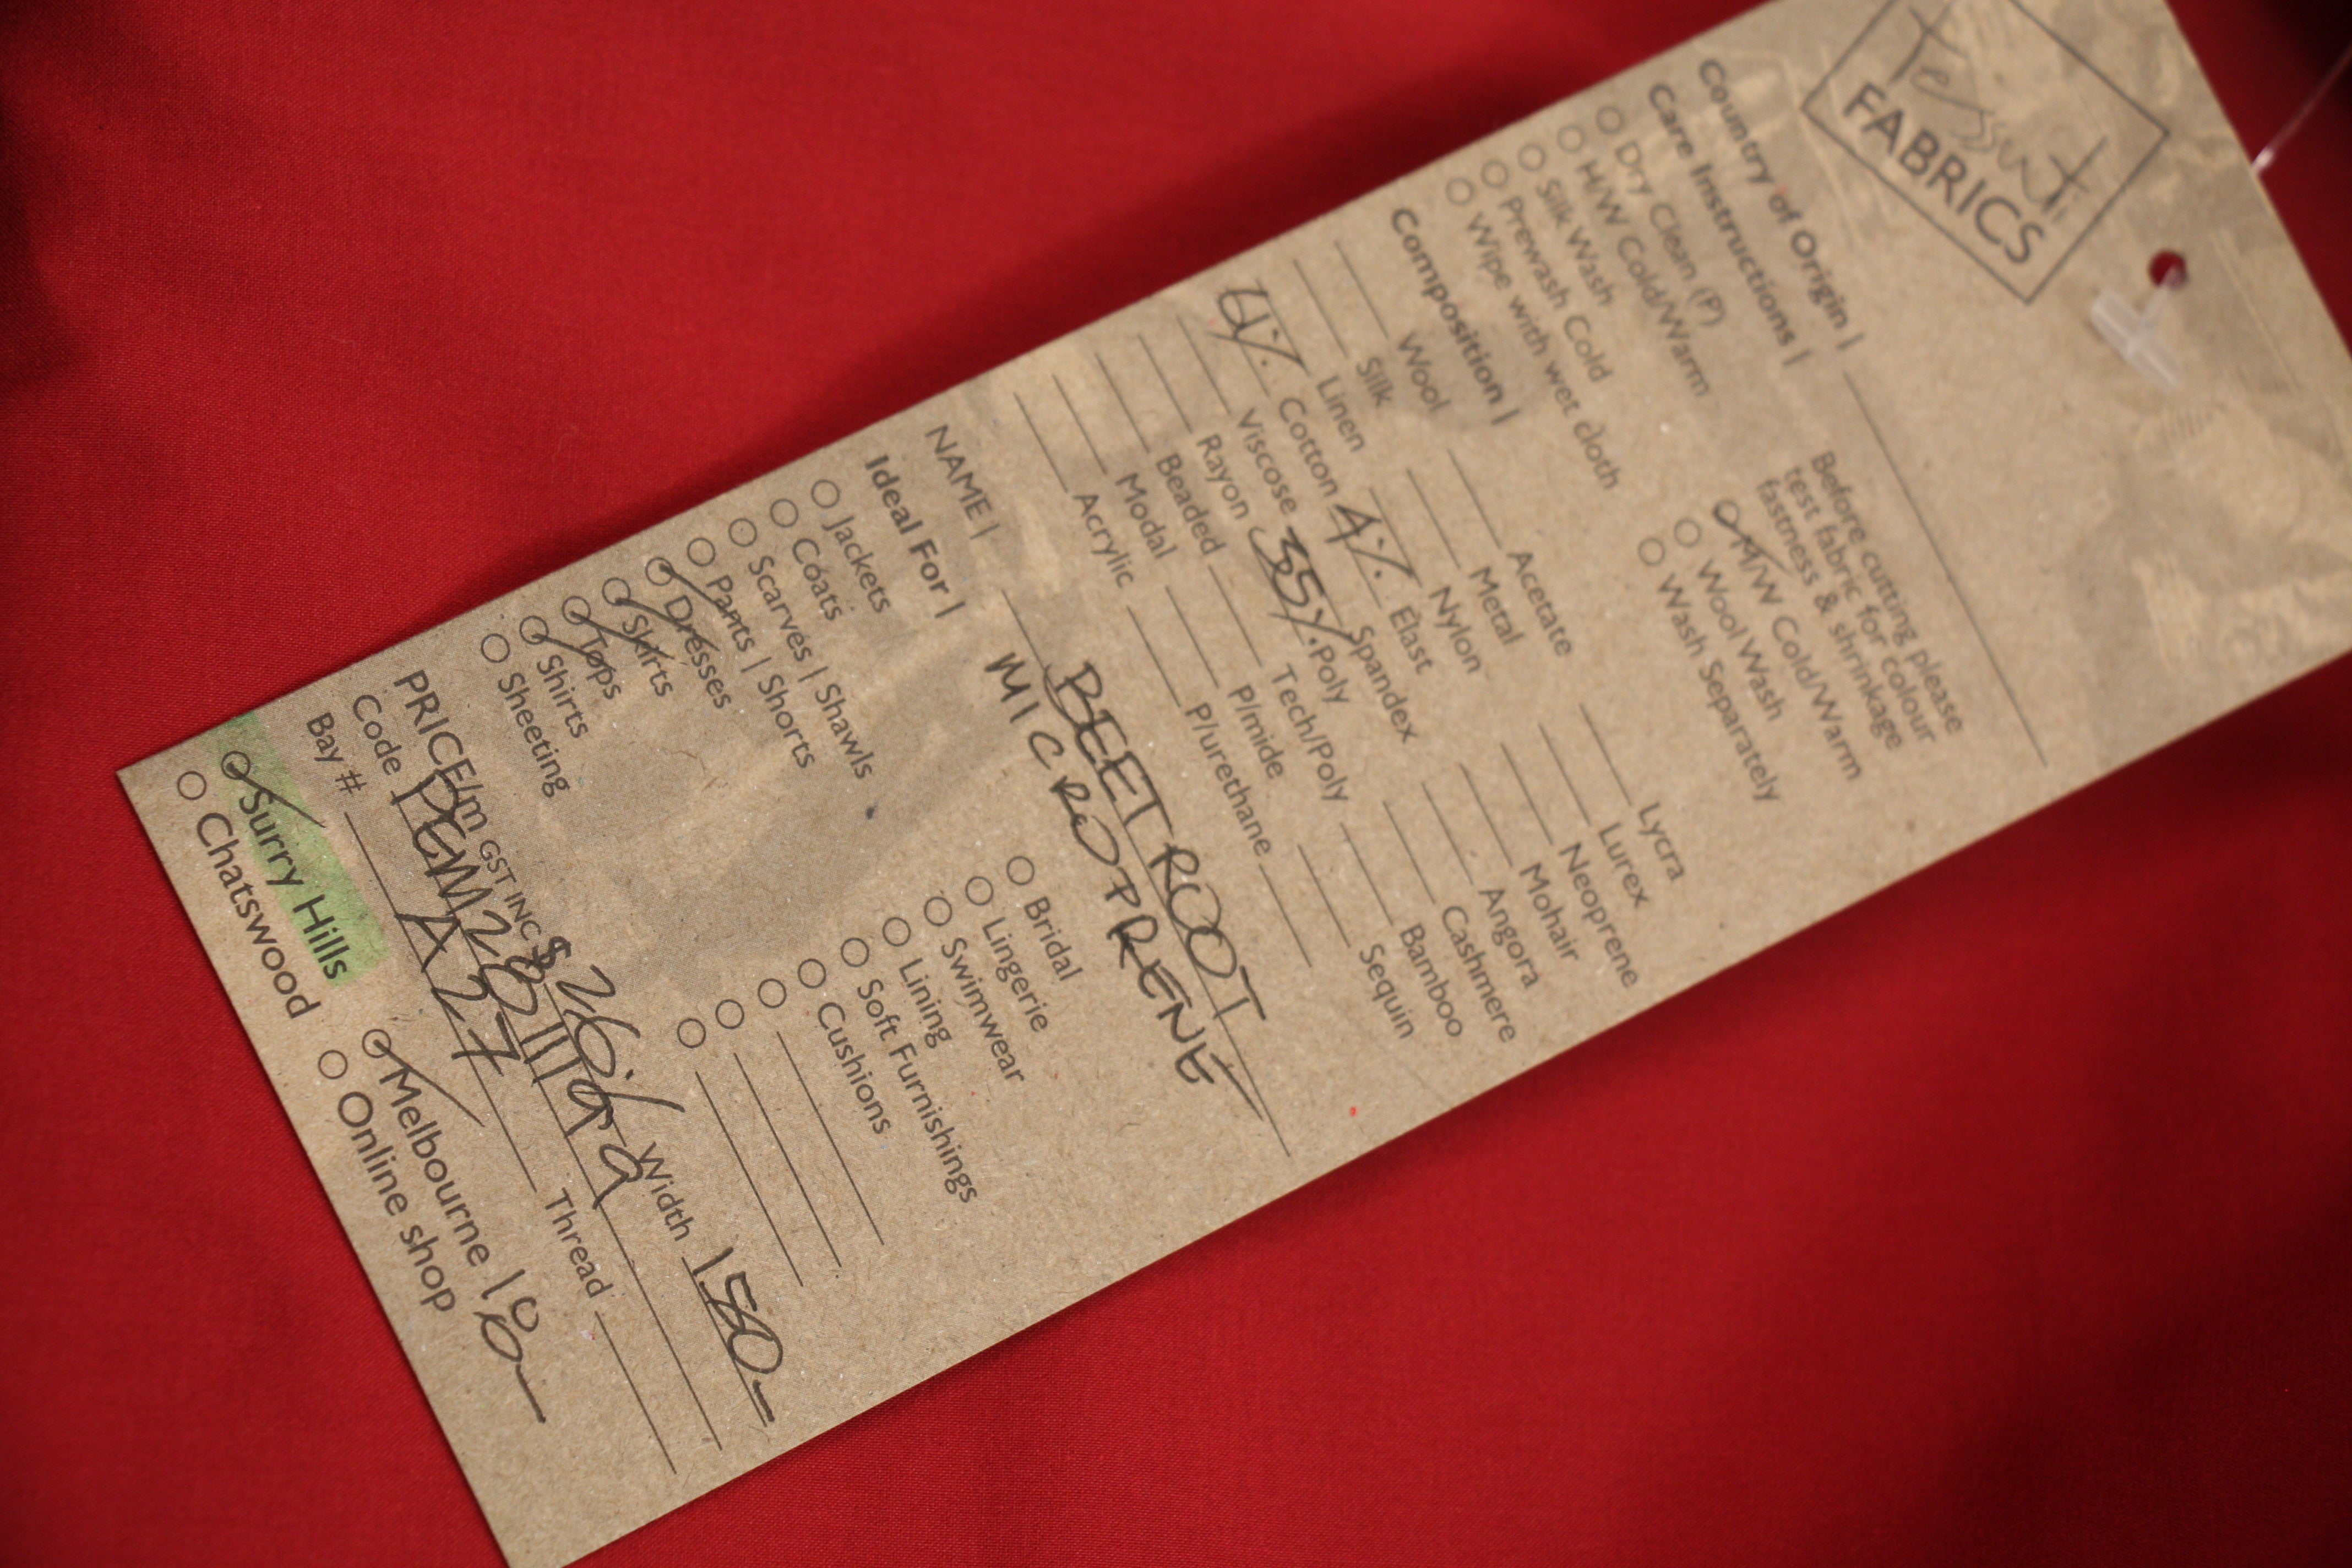 tessuti
FABRICS
Country of Origin |
Care Instructions |
Before cutting please
test fabric for colour
fastness & shrinkage
Dry Clean (P)
H/W Cold/Warm
Silk Wash
Prewash Cold
Wipe with wet cloth
M/W Cold/Warm
Wool Wash
Wash Separately
Composition |
Wool Acetate Lycra
Silk Metal Lurex
Linen Nylon Neoprene
Cotton 4% Elast Mohair
Viscose Spandex Angora
Rayon 35% Poly Cashmere
Beaded Tech/Poly Bamboo
Modal P/mide Sequin
Acrylic P/urethane
NAME | BEETROOT
MICROPRENE
Ideal For |
Jackets Bridal
Coats Lingerie
Scarves | Shawls Swimwear
Pants | Shorts Lining
Dresses Soft Furnishings
Skirts Cushions
Tops
Shirts
Sheeting
PRICE/m GST INC $ Width 150
Code
Bay # A27 Thread
Surry Hills Melbourne
Chatswood Online shop